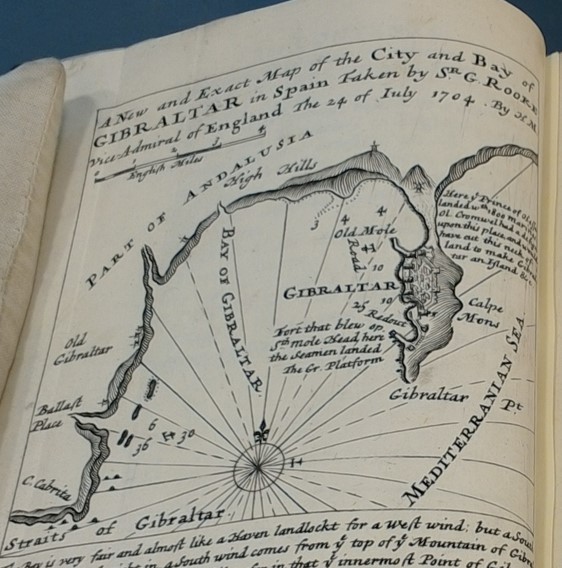 A New and Exact Map of the City and Bay of
GIBRALTAR in Spain Taken by Sr. G. ROOKE
Vice Admiral of England The 24 of July 1704. By H. M
English Miles
PART OF ANDALUSIA
High Hills
Here ye Prince of
landed wth 1800 marin
Ol. Cromwel had a
upon this place and
have cut this neck of
land to make Gibral
tar an Island
3
4
4
4
10
Old Mole
Road
BAY OF GIBRALTAR
GIBRALTAR
25
19
Redout
Calpe
Mons
Fort that blew op.
Sth mole Head, here
the Seamen landed
The Gr. Platform
Old
Gibraltar
Gibraltar Pt
Ballast
Place
6
36
30
MEDITERRANIAN SEA
C. Cabrita
Straits of Gibraltar
Bay is very fair and almost like a Haven landlockt for a West wind: but a Sou
a South wind comes from ye top of ye Mountain of Gibr
in that ye innermost Point of